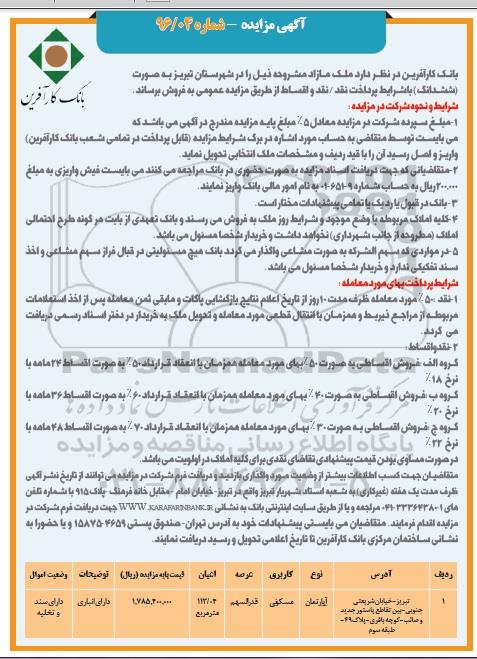 آگهی مزایده – شماره ۹۶/۰۴
بانک کارآفرین
بانک کارآفرین در نظر دارد ملک مازاد مشروحه ذیل را در شهرستان تبریز به صورت
(ششدانگ) باشرایط پرداخت نقد /نقد و اقساط از طریق مزایده عمومی به فروش برساند.
شرایط و نحوه شرکت در مزایده :
۱-مبلغ سپرده شرکت در مزایده معادل ۵٪ مبلغ پایه مزایده مندرج در آگهی می باشد که
می بایست توسط متقاضی به حساب مورد اشاره در برگ شرایط مزایده (قابل پرداخت در تمامی شعب بانک کارآفرین)
واریز و اصل رسید آن را با قید ردیف و مشخصات ملک انتخابی تحویل نماید.
۲-متقاضیانی که جهت دریافت اسناد مزایده به صورت حضوری در بانک مراجعه می کنند می بایست فیش واریزی به مبلغ
۲۰۰.۰۰۰ریال به حساب شماره ۹-۶۵۱-۰۱ به نام امور مالی بانک واریز نمایند.
۳- بانک در قبول یا رد یک یا تمامی پیشنهادات مختار است.
۴-کلیه املاک مربوطه با وضع موجود و شرایط روز ملک به فروش می رسند و بانک تعهدی از بابت هر گونه طرح احتمالی
املاک (مطروحه از جانب شهرداری) نخواهد داشت و خریدار شخصا مسئول می باشد.
۵-در مواردی که سهم الشرکه به صورت مشاعی واگذار می گردد بانک هیچ مسئولیتی در قبال افراز سهم مشاعی و اخذ
سند تفکیکی ندارد و خریدار شخصا مسئول می باشد.
شرایط پرداخت بهای مورد معامله :
۱-نقد ۵۰٪ مورد معامله ظرف مدت ۱۰روز از تاریخ اعلام نتایج بازگشایی پاکات و مابقی ثمن معامله پس از اخذ استعلامات
مربوطه از مراجع ذیربط و همزمان با انتقال قطعی مورد معامله و تحویل ملک به خریدار در دفتر اسناد رسمی دریافت
می گردد.
۲-نقد و اقساط:
گروه الف: فروش اقساطی به صورت ۵۰٪ بهای مورد معامله همزمان با انعقاد قرارداد ۵۰٪ به صورت اقساط ۲۴ماهه با
نرخ ۱۸٪
گروه ب: فروش اقساطی به صورت ۴۰٪ بهای مورد معامله همزمان با انعقاد قرارداد ۶۰٪ به صورت اقساط ۳۶ماهه با
نرخ ۲۰٪
گروه ج: فروش اقساطی به صورت ۳۰٪ بهای مورد معامله همزمان با انعقاد قرارداد ۷۰٪ به صورت اقساط ۴۸ماهه با
نرخ ۲۲٪
در صورت مساوی بودن قیمت پیشنهادی تقاضای نقدی برای کلیه املاک در اولویت می باشد.
متقاضیان جهت کسب اطلاعات بیشتر از وضعیت مورد واگذاری بازدید و دریافت فرم شرکت در مزایده می توانند از تاریخ نشر آگهی
ظرف مدت یک هفته (غیرکاری) به شعبه استاد شهریار تبریز واقع در تبریز- خیابان امام - مقابل خانه فرهنگ -پلاک ۹۱۵ با شماره تلفن
های ۱-۳۳۳۶۴۳۸۰-۰۴۱ مراجعه و یا از طریق سایت اینترنتی بانک به نشانی WWW.KARAFARINBANK.IR جهت دریافت فرم شرکت در
مزایده اقدام فرمایند. متقاضیان می بایستی پیشنهادات خود به آدرس تهران- صندوق پستی ۴۶۵۹-۱۵۸۷۵ و یا حضورا به
نشانی ساختمان مرکزی بانک کارآفرین تا تاریخ اعلامی تحویل و رسید دریافت نمایند.
ردیف آدرس نوع کاربری عرصه اعیان قیمت پایه مزایده (ریال) توضیحات وضعیت اموال
۱ تبریز-خیابان شریعتی جنوبی-بین تقاطع پاستور جدید و صائب-کوچه باقری-پلاک ۴۹- طبقه سوم آپارتمان مسکونی قدرالسهم ۱۱۲/۰۴ مترمربع ۱,۷۸۵,۴۰۰,۰۰۰ دارای انباری دارای سند و تخلیه